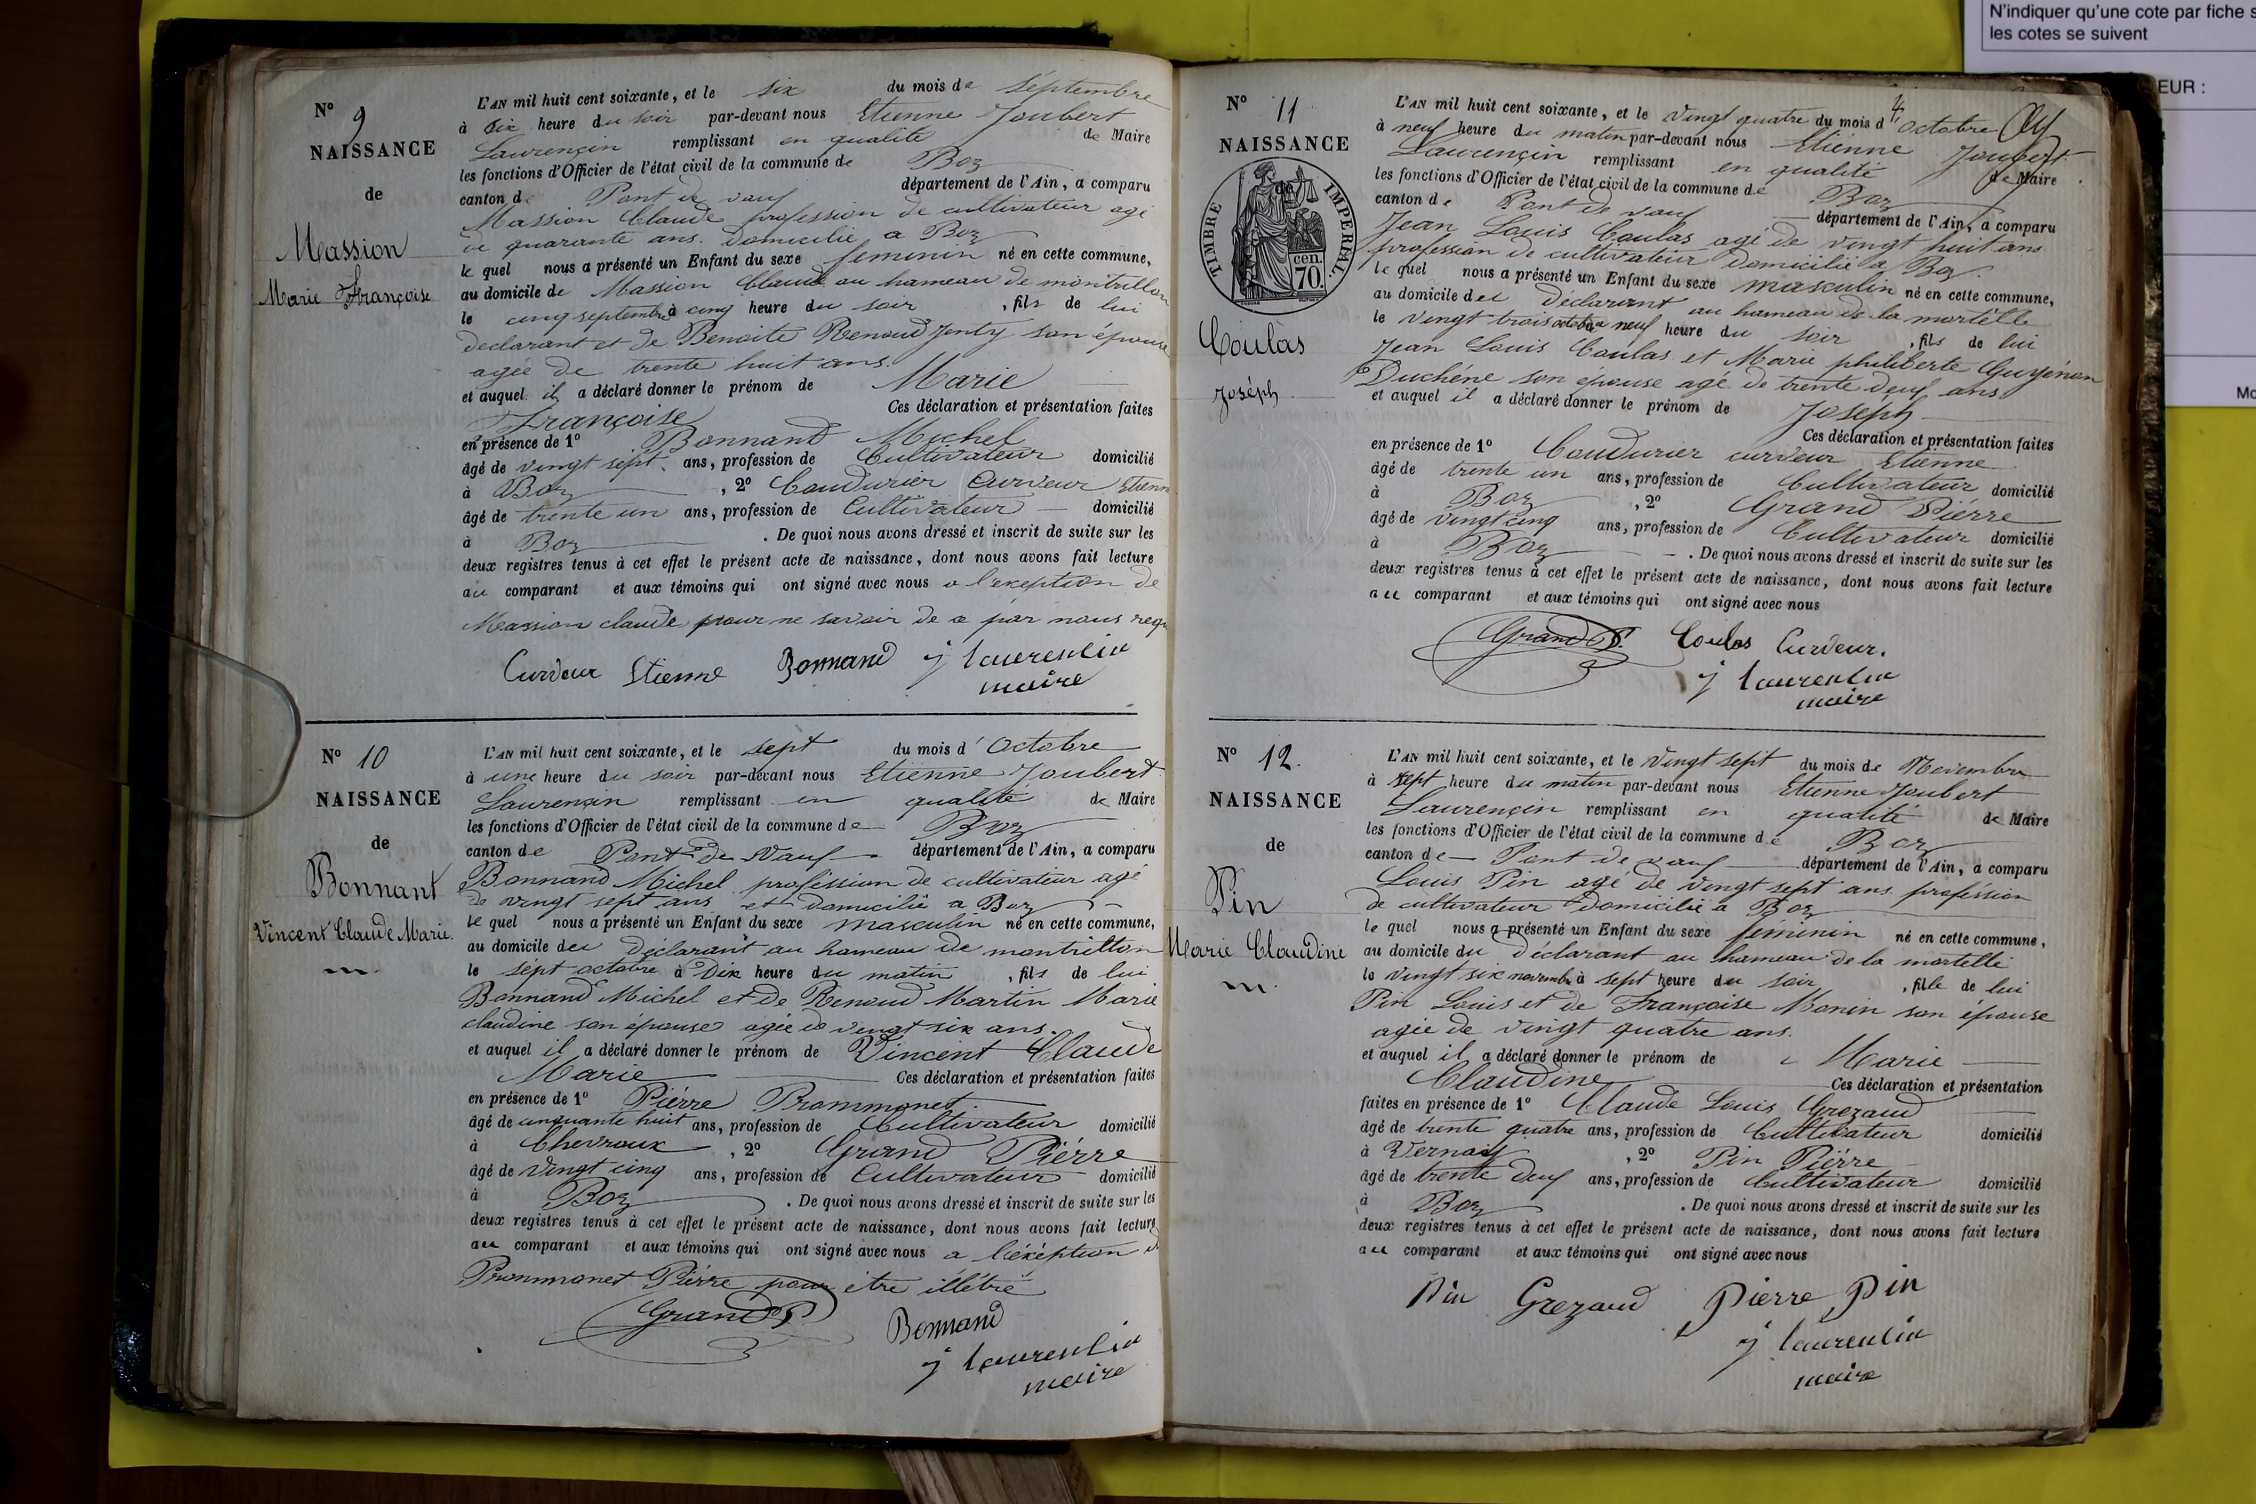 N'indiquer qu'une cote par fiche s
les cotes se suivent
EUR :
Mo
N° 9
NAISSANCE
de
Massion
Marie Françoise
L'AN mil huit cent soixante, et le six du mois de Séptembre
à six heure du soir par-devant nous Etienne Joubert
Laurençin remplissant en qualité de Maire
les fonctions d'Officier de l'état civil de la commune de Boz
canton de Pont de vaux département de l'Ain, a comparu
Massion Claude profession de cultivateur agé
de quarante ans. Domicilié a Boz
le quel nous a présenté un Enfant du sexe feminin né en cette commune,
au domicile de Massion Claude au hameau de montrillon
le cinq septembre à cinq heure du soir , fils de lui
declarant et de Benoite Renoud Jenty son épouse
agée de trente huit ans.
et auquel il a déclaré donner le prénom de Marie
Françoise Ces déclaration et présentation faites
en présence de 1° Bonnand Michel
âgé de vingt sépt ans, profession de Cultivateur domicilié
à Boz , 2° Coudurier Curveur Etienn
âgé de trente un ans, profession de Cultivateur domicilié
à Boz . De quoi nous avons dressé et inscrit de suite sur les
deux registres tenus à cet effet le présent acte de naissance, dont nous avons fait lecture
au comparant et aux témoins qui ont signé avec nous a l'exeption de
Massion claude pour ne savoir de a par nous requ
Curveur Etienne Bonnand j laurencin
maire
N° 10
NAISSANCE
de
Bonnant
Vincent Claude Marie
L'AN mil huit cent soixante, et le sept du mois d'Octobre
à une heure du soir par-devant nous Etienne Joubert
Laurençin remplissant en qualité de Maire
les fonctions d'Officier de l'état civil de la commune de Boz
canton de Pont de Vaux département de l'Ain, a comparu
Bonnand Michel profession de cultivateur agé
de vingt sept ans et domicilié a Boz
le quel nous a présenté un Enfant du sexe masculin né en cette commune,
au domicile du Déclarant au hameau de montrillon
le sépt octobre à Dix heure du matin , fils de lui
Bonnand Michel et de Renoud Martin Marie
claudine son épouse agée de vingt six ans.
et auquel il a déclaré donner le prénom de Vincent Claude
Marie Ces déclaration et présentation faites
en présence de 1° Piérre Prommonet
âgé de cinquante huit ans, profession de Cultivateur domicilié
à Chevroux , 2° Grand Piérre
âgé de vingt cinq ans, profession de Cultivateur domicilié
à Boz . De quoi nous avons dressé et inscrit de suite sur les
deux registres tenus à cet effet le présent acte de naissance, dont nous avons fait lecture
au comparant et aux témoins qui ont signé avec nous a l'éxéption d
Prommonet Piérre pour étre illétré
Grand P Bonnand
j laurencin
maire
4
N° 11
NAISSANCE
de
TIMBRE IMPERIAL.
cen.
70.
Coulas
Joséph
L'AN mil huit cent soixante, et le vingt quatre du mois d'octobre
à neuf heure du matin par-devant nous Etienne Joubert
Laurençin remplissant en qualité de Maire
les fonctions d'Officier de l'état civil de la commune de Boz
canton de Pont de vaux département de l'Ain, a comparu
Jean Louis Coulas agé de vingt huit ans
profession de cultivateur domicilié a Boz.
le quel nous a présenté un Enfant du sexe masculin né en cette commune,
au domicile du Déclarant au hameau de la mortelle
le vingt trois octobre a neuf heure du soir , fils de lui
Jean Louis Coulas et Marie philiberte Guyénon
Duchéne son épouse agé de trente deux ans
et auquel il a déclaré donner le prénom de Joséph
Ces déclaration et présentation faites
en présence de 1° Coudurier curveur Etienne
âgé de trente un ans, profession de Cultivateur domicilié
à Boz , 2° Grand Piérre
âgé de vingt cinq ans, profession de Cultivateur domicilié
à Boz . De quoi nous avons dressé et inscrit de suite sur les
deux registres tenus à cet effet le présent acte de naissance, dont nous avons fait lecture
au comparant et aux témoins qui ont signé avec nous
Grand P. Coulas Curveur.
j laurencin
maire
N° 12.
NAISSANCE
de
Pin
Marie Claudine
L'AN mil huit cent soixante, et le vingt sept du mois de Novembre
à sept heure du matin par-devant nous Etienne Joubert
Laurençin remplissant en qualité de Maire
les fonctions d'Officier de l'état civil de la commune de Boz
canton de Pont de vaux département de l'Ain, a comparu
Louis Pin agé de vingt sept ans proféssion
de cultivateur Domicilié a Boz
le quel nous a présenté un Enfant du sexe feminin né en cette commune,
au domicile du Déclarant au hameau de la mortelle
le vingt six novembre à sept heure du soir , fille de lui
Pin Louis et de Françoise Monin son épouse
agée de vingt quatre ans.
et auquel il a déclaré donner le prénom de Marie
Claudine Ces déclaration et présentation
faites en présence de 1° Claude Louis Grezaud
âgé de trente quatre ans, profession de Cultivateur domicilié
à Vernoux , 2° Pin Piérre
âgé de trente deux ans, profession de Cultivateur domicilié
à Boz . De quoi nous avons dressé et inscrit de suite sur les
deux registres tenus à cet effet le présent acte de naissance, dont nous avons fait lecture
au comparant et aux témoins qui ont signé avec nous
Pin Grezaud Pierre Pin
j laurencin
maire